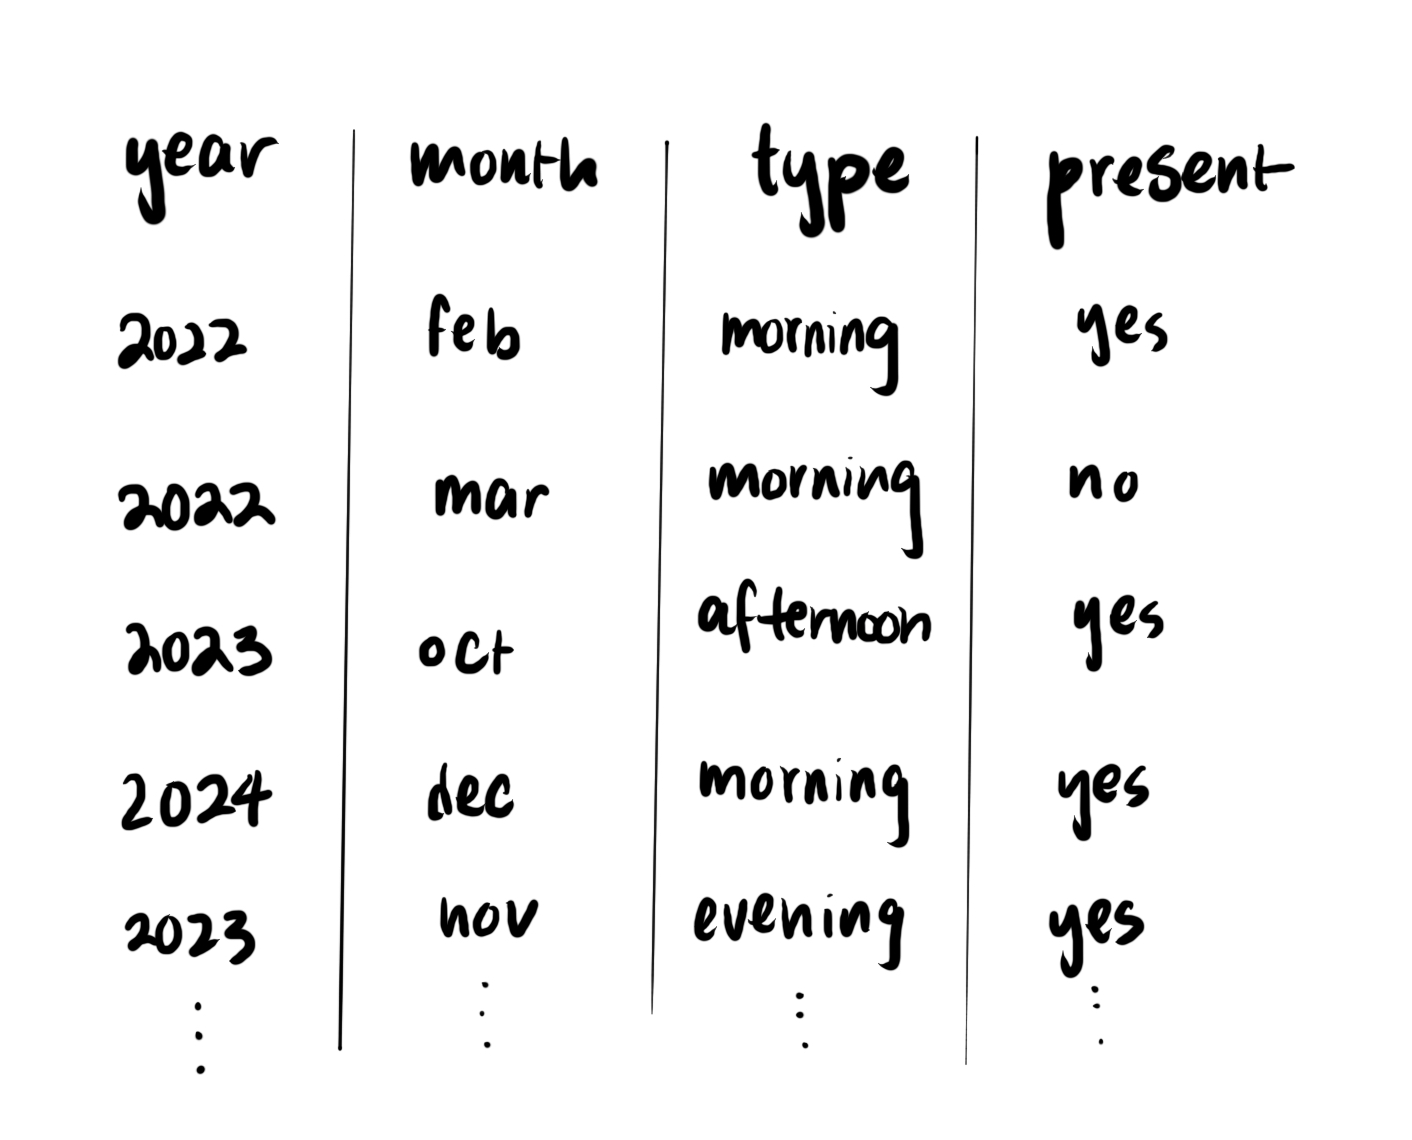 year month type present
2022 feb morning yes
2022 mar morning no
2023 oct afternoon yes
2024 dec morning yes
2023 nov evening yes